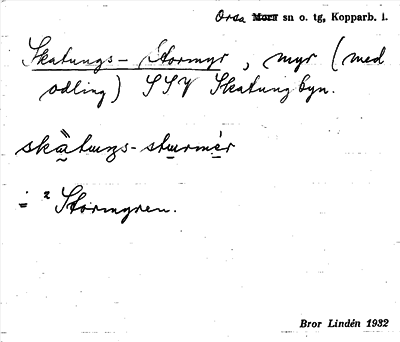 Orsa Mora sn o. tg, Kopparb. l.
Skatungs-Stormyr, myr (med
odling) SSV Skatungbyn.
skàtuŋs-sturmér
i ² Stormyren.
Bror Lindén 1932